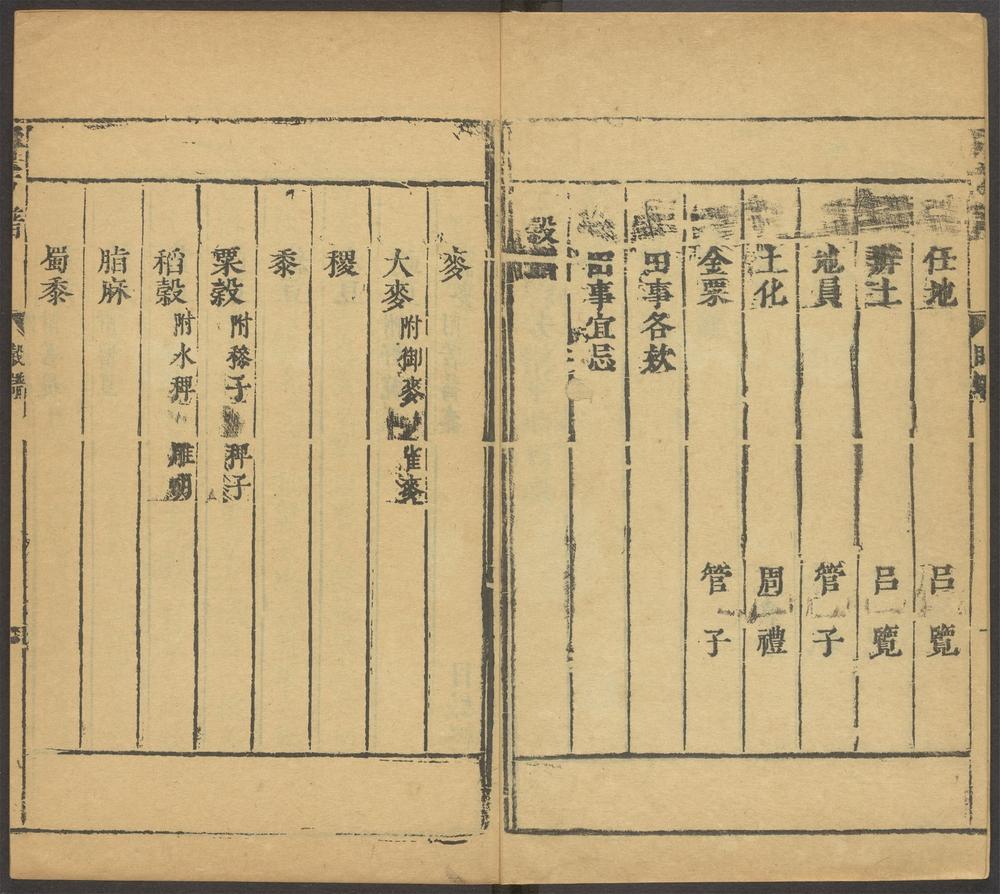 任地 呂覽
辨土 呂覽
地員 管子
土化 周禮
金粟 管子
田事各欵
田事宜忌
穀
麥
大麥 附御麥 雀麥
稷
黍
粟穀 附稌子 稗子
稻穀 附水稗 雕胡
脂麻
蜀黍
穀譜